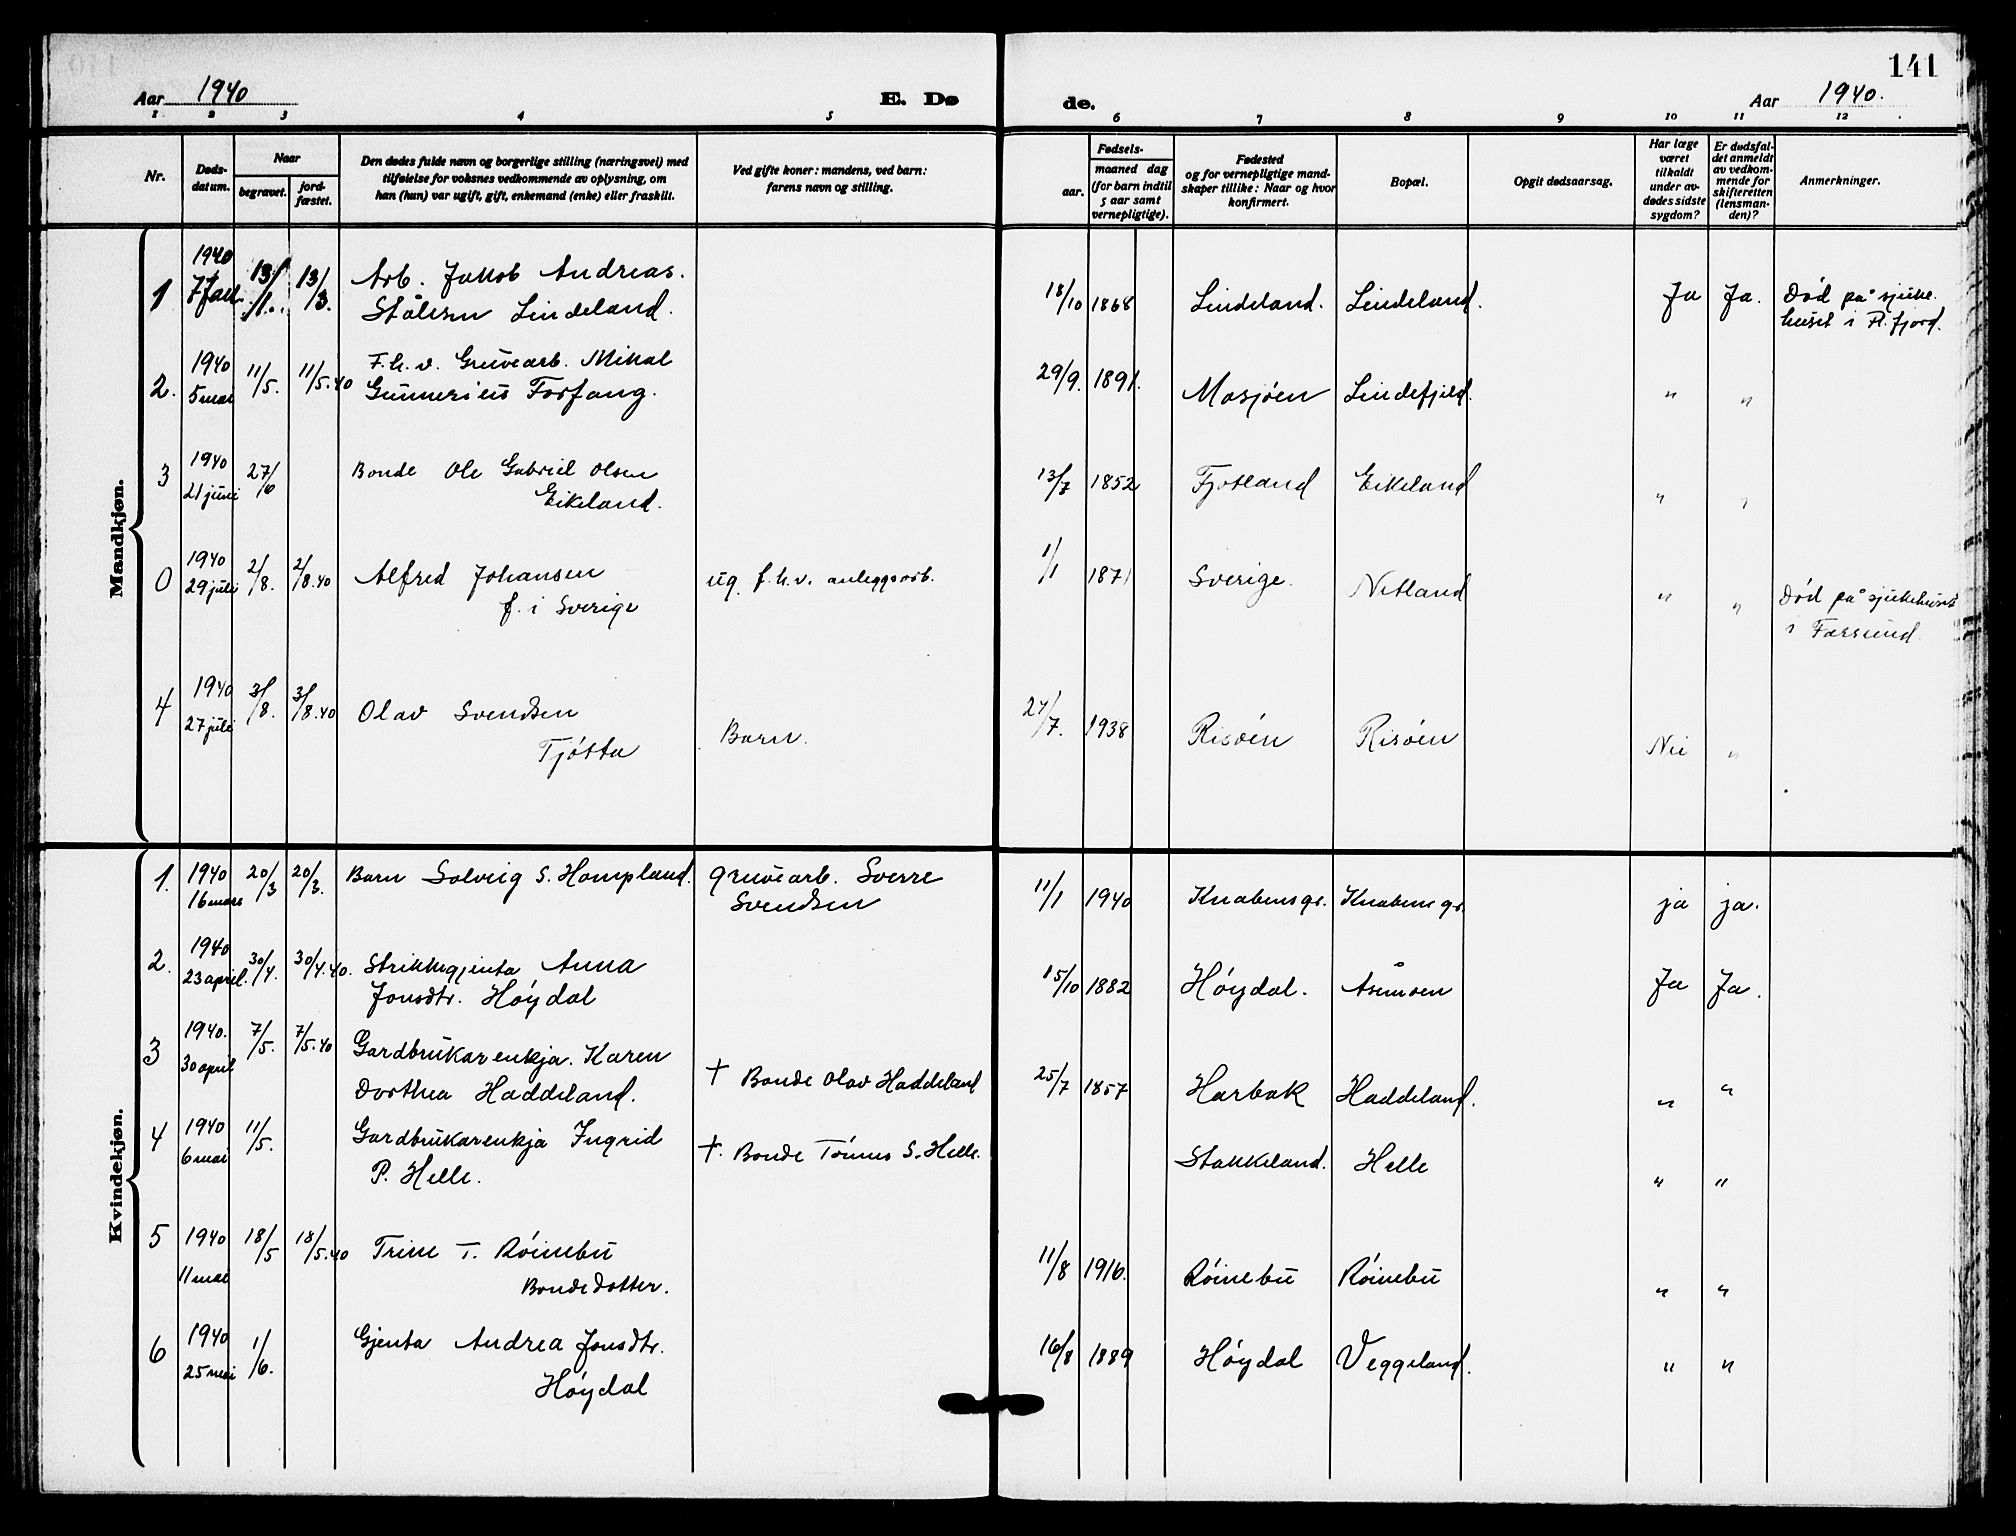 141
Aar 1940
E. Dø
de.
Aar 1940.
1 2 3 4 5 6 7 8 9 10 11 12
Nr.
Døds-
datum.
Naar
begravet.
jord-
fæstet.
Den dødes fulde navn og borgerlige stilling (næringsvei) med
tilføielse for voksnes vedkommende av oplysning, om
han (hun) var ugift, gift, enkemand (enke) eller fraskilt.
Ved gifte koner: mandens, ved barn:
farens navn og stilling.
Fødsels-
aar.
maaned dag
(for barn indtil
5 aar samt
vernepligtige).
Fødested
og for vernepligtige mand-
skaper tillike: Naar og hvor
konfirmert.
Bopæl.
Opgit dødsaarsag.
Har læge
været
tilkaldt
under av-
dødes sidste
sygdom?
Er dødsfal-
det anmeldt
av vedkom-
mende for
skifteretten
(lensman-
den)?
Anmerkninger.
Mandkjøn.
1 1940 7 jan. 13/1. 13/3. Arb. Jakob Andreas. 18/10 1868 Lindeland. Lindeland. Ja Ja. Død på sjuke.
Stålesen Lindeland. huset i Fl.fjord.
2. 1940 5 mai 11/5. 11/5.40 F.h.v. Gruvearb. Mikal 29/9. 1891. Mosjöen Lindefjeld. " "
Gunnerius Forfang.
3 1940 21 juni 27/6 Bonde Ole Gabriel Olsen 13/7 1852 Fjotland Eikeland " "
Eikeland.
0 1940 29 juli 2/8. 2/8.40 Alfred Johansen ug. f.h.v. anleggsarb. 1/1 1871 Sverige. Netland " " Død på sjukehuset
f. i Sverige i Farsund.
4 1940 27 juli 3/8. 3/8.40 Olav Svendsen Barn. 27/7. 1938 Risöen Risöen Nei "
Tjötta
Kvindekjøn.
1. 1940 16 mars 20/3 20/3. Barn Solveig S. Hompland. gruvearb. Sverre 11/1 1940 Knabensgr. Knabensgr. ja ja.
Svendsen
2. 1940 23 april. 30/4. 30/4.40. Strikkegjenta Anna 15/10 1882 Höydal. Åsenmoen Ja Ja.
Jonsdtr. Höydal
3 1940. 30 april 7/5. 7/5.40 Gardbrukarenkja. Karen † Bonde Olav Haddeland 25/7 1857 Harbak Haddeland. " "
Dorthea Haddeland.
4 1940 6 mai 11/5. Gardbrukarenkja Ingrid †. Bonde Tönnes S. Helle. Stakkeland. Helle " "
P. Helle.
5 1940 11 mai 18/5 18/5.40 Trine T. Röinebu 11/8 1916. Röinebu Röinebu " "
Bondedotter.
6 1940 25 mai 1/6. Gjenta Andrea Jonsdtr. 16/8 1889 Höydal Veggeland. " "
Höydal